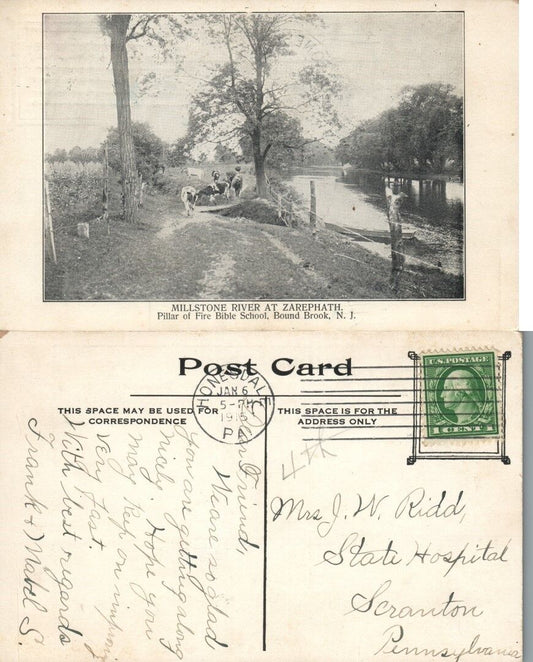 MILLSTONE RIVER AT ZAREPHATH.
Pillar of Fire Bible School, Bound Brook, N. J.
Post Card
THIS SPACE MAY BE USED FOR
CORRESPONDENCE
THIS SPACE IS FOR THE
ADDRESS ONLY
HONESDALE
JAN 6
5-PM
1915
PA
U.S. POSTAGE
1 CENT 1
4th
Dear Friend,
We are so glad
you are getting along
nicely. Hope you
may keep on improving
very fast.
With best regards
Frank & Mabel S.
Mrs J. W. Ridd,
State Hospital
Scranton
Pennsylvania